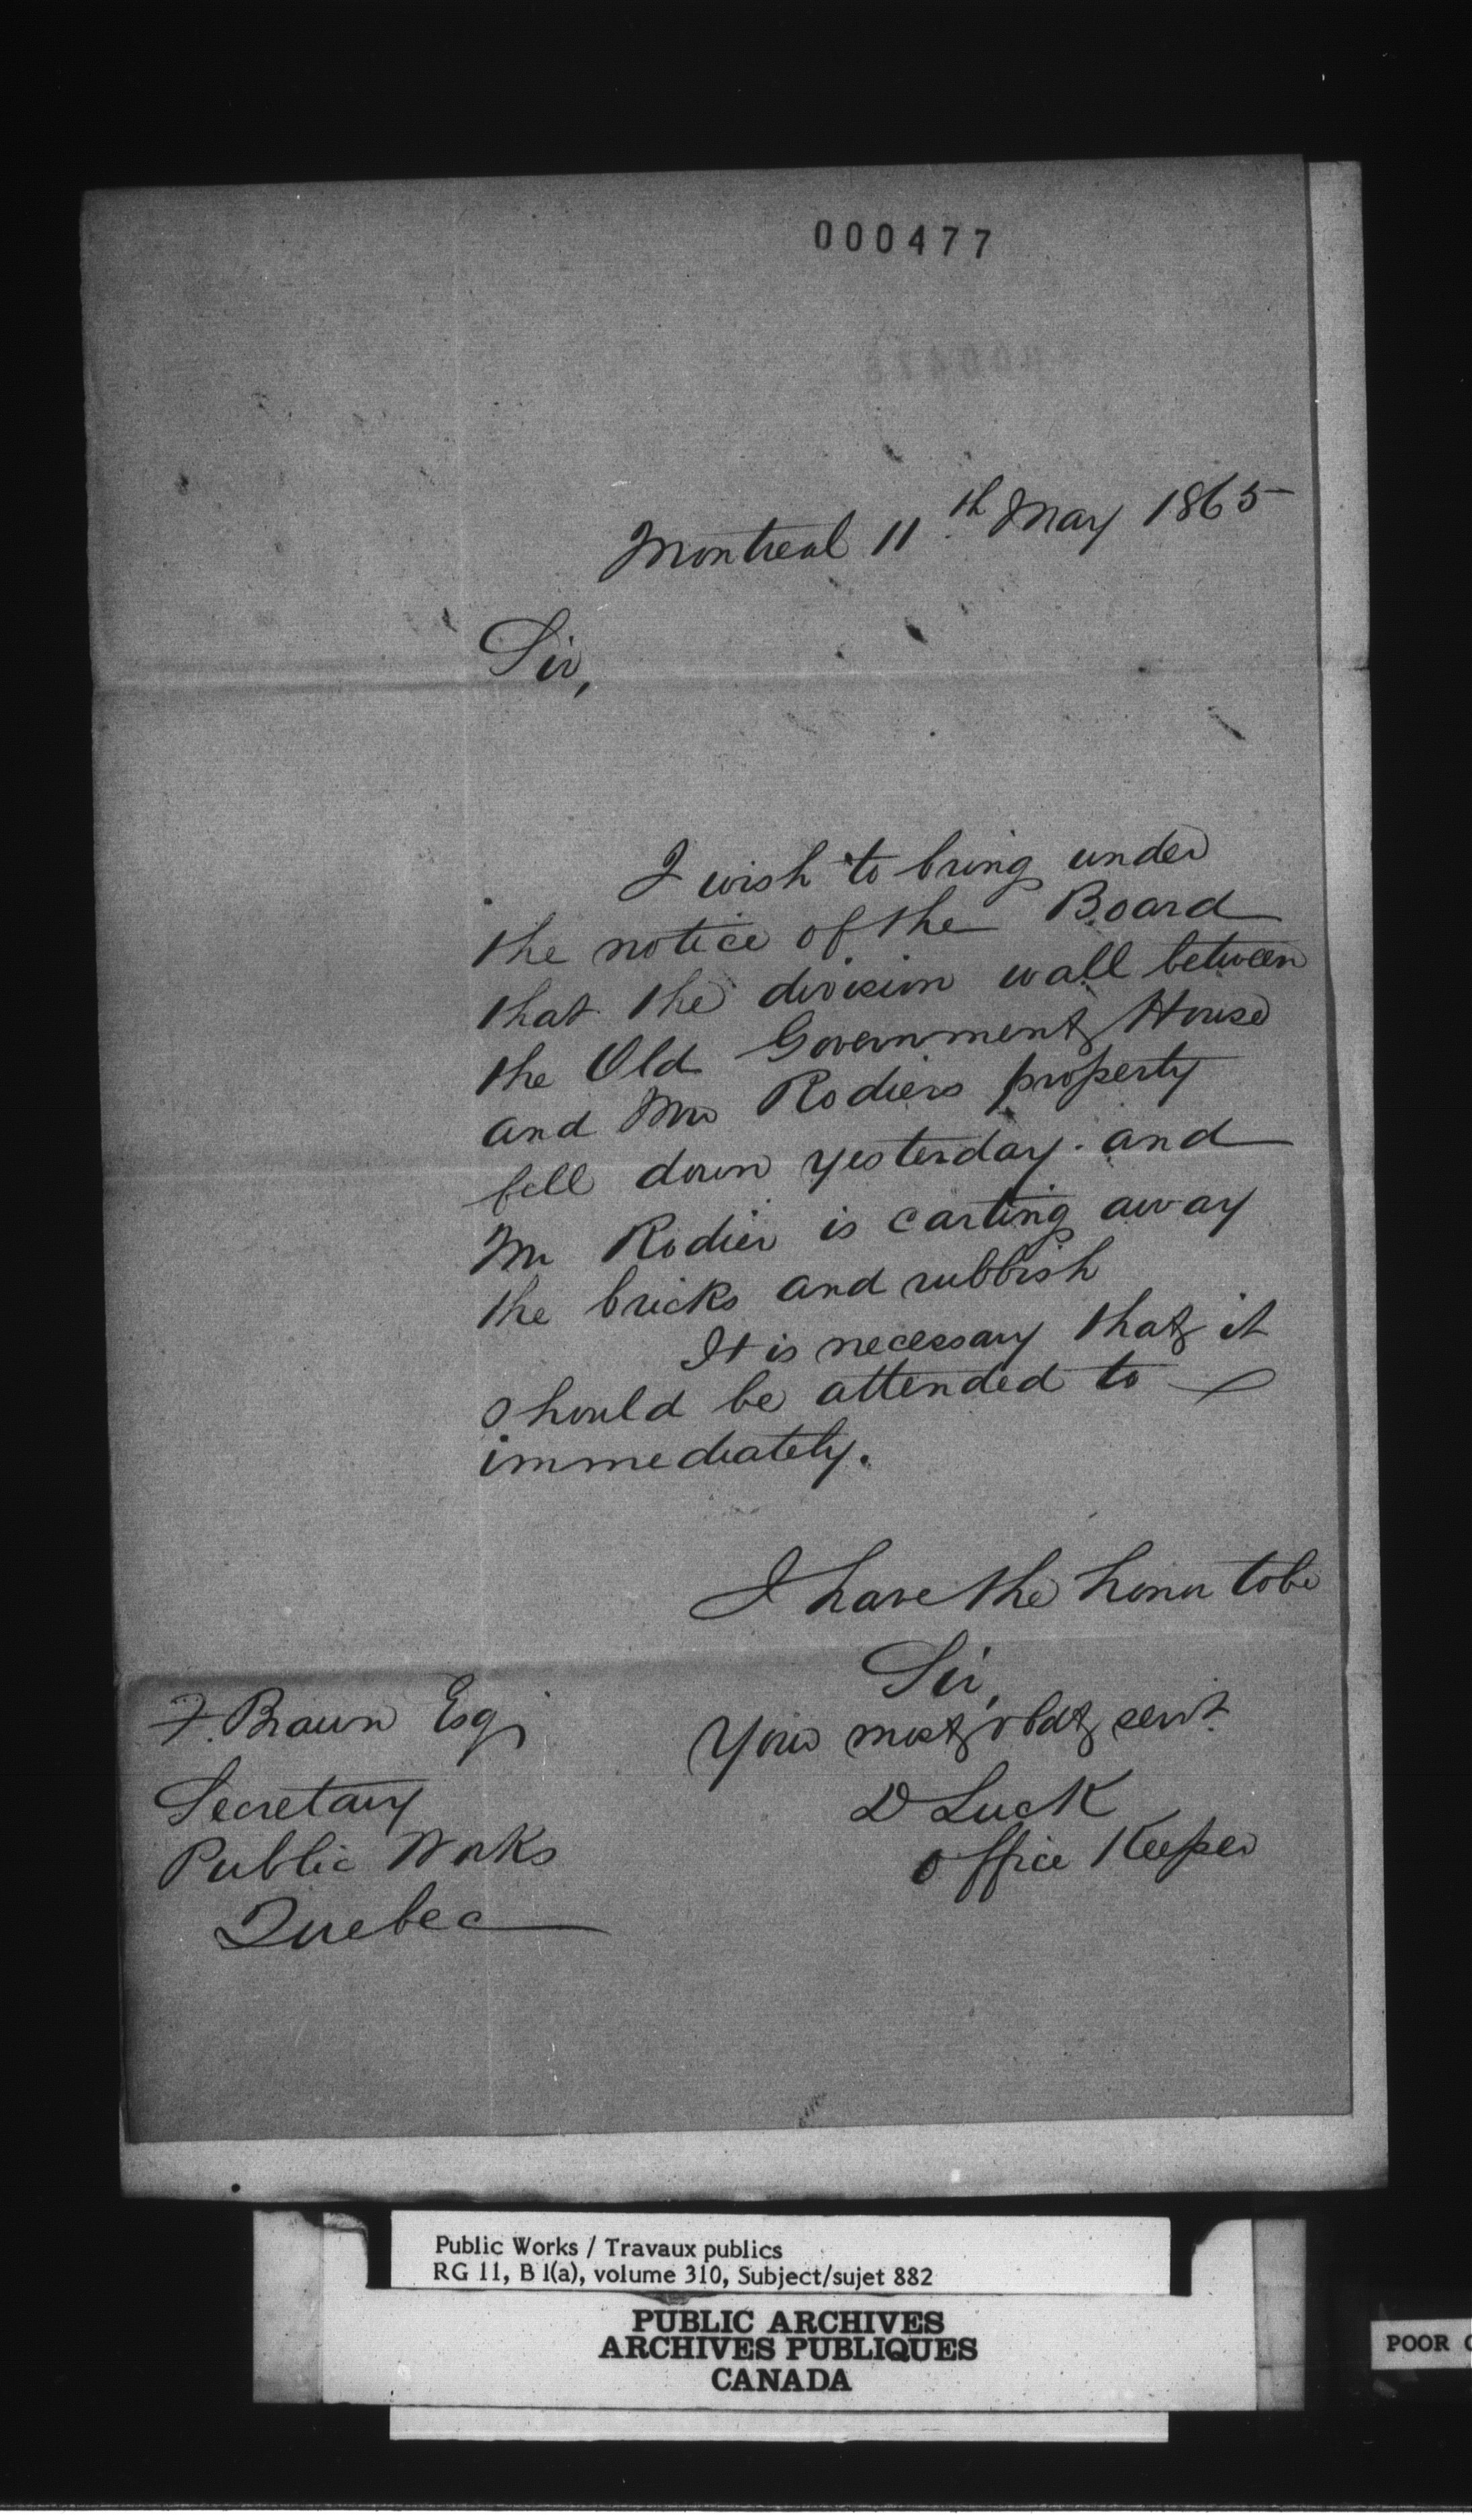 000477
Montreal 11th May 1865
Sir,
I wish to bring under
the notice of the Board
that the division wall between
the Old Government House
and Mr Rodiers property
fell down yesterday. and
Mr Rodier is carting away
the bricks and rubbish
It is necessary that it
should be attended to
immediately.
I have the honor to be
Sir,
Your most obdt servt.
D Luck
Office Keeper
F. Braun Esqr
Secretary
Public Works
Quebec
Public Works / Travaux publics
RG 11, B 1(a), volume 310, Subject/sujet 882
PUBLIC ARCHIVES
ARCHIVES PUBLIQUES
CANADA
POOR